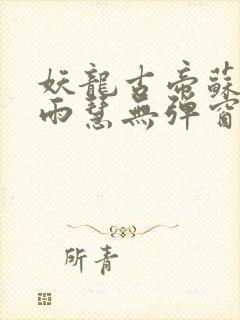 妖龍古帝蘇
雨慧無彈窗
所青